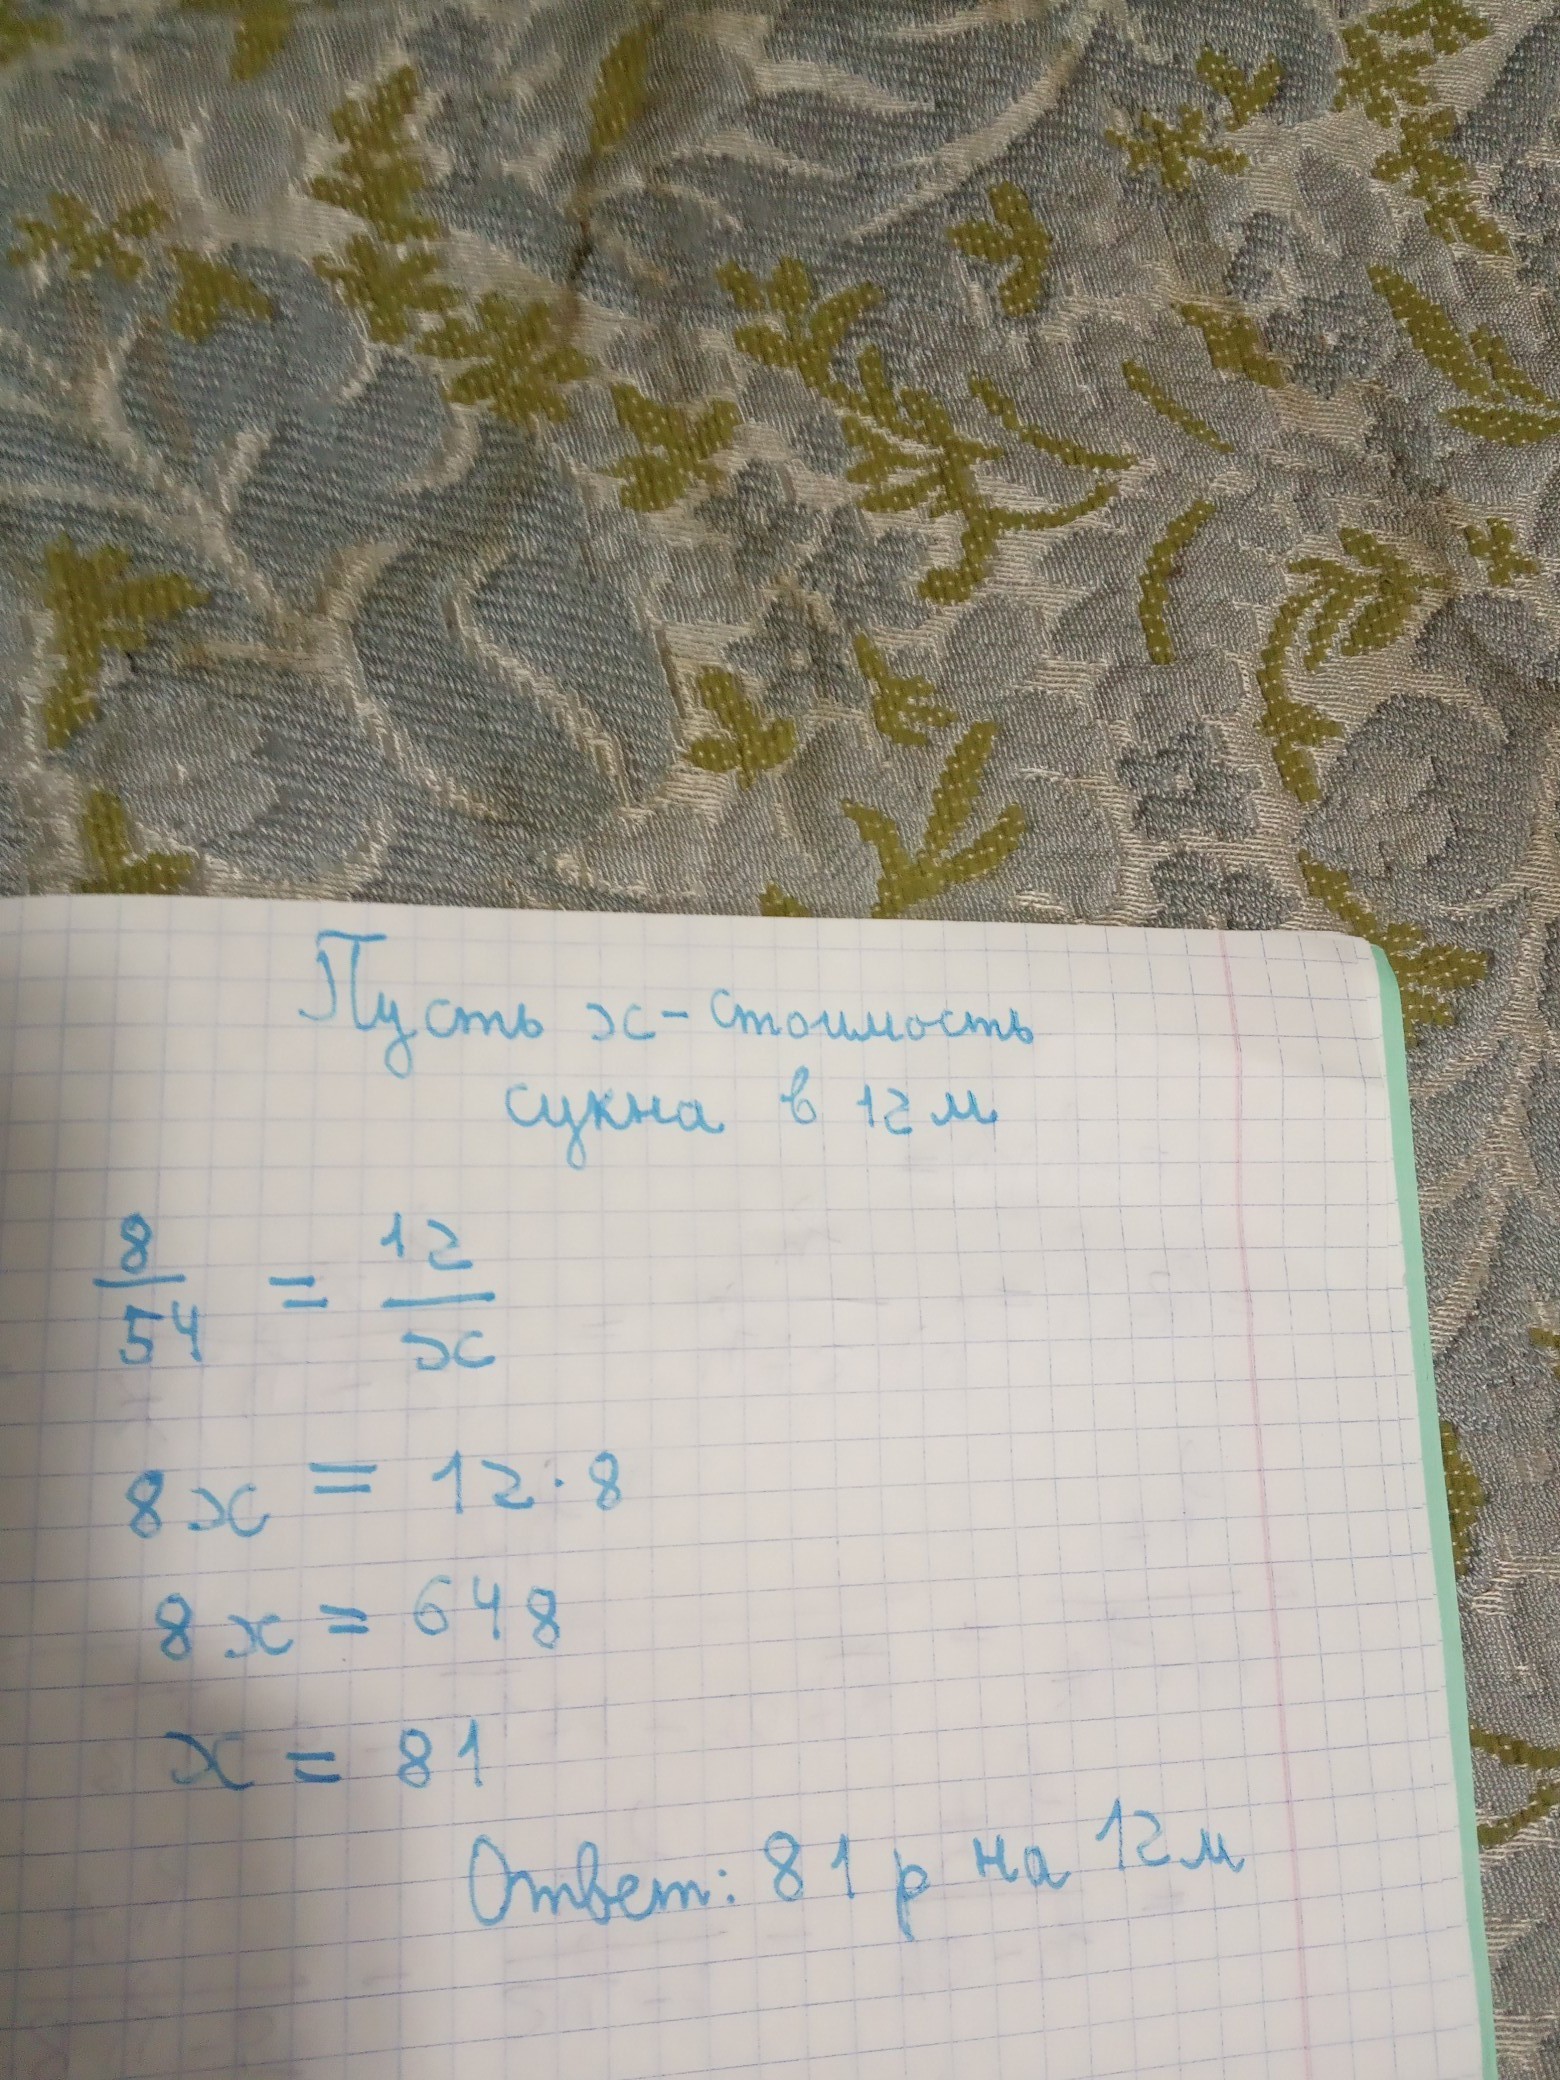 Пусть x - стоимость
сукна в 12 м
8/54 = 12/x
8x = 12·8
8x = 648
x = 81
Ответ: 81 р на 12 м